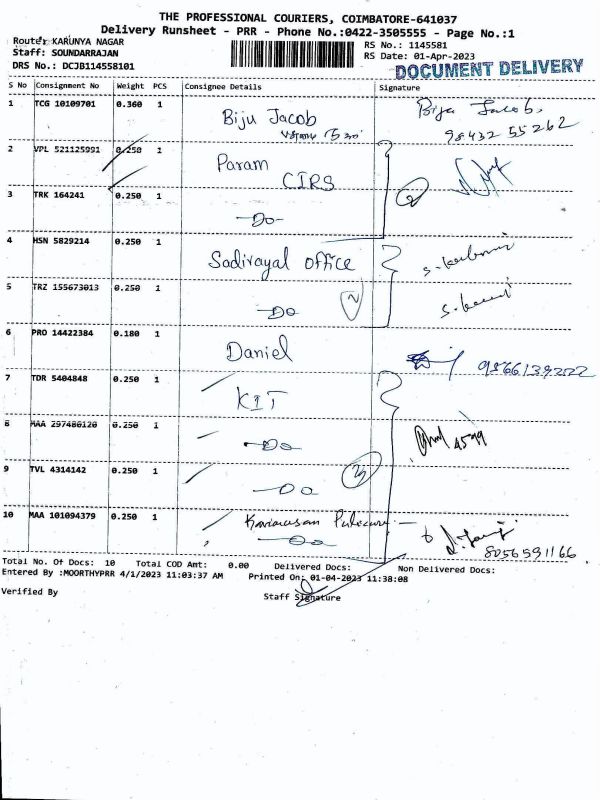 THE PROFESSIONAL COURIERS, COIMBATORE-641037
Delivery Runsheet - PRR - Phone No.:0422-3505555 - Page No.:1
Route: KARUNYA NAGAR
Staff: SOUNDARRAJAN
DRS No.: DCJB114558101
RS No.: 1145581
RS Date: 01-Apr-2023
DOCUMENT DELIVERY
S No Consignment No Weight PCS Consignee Details Signature
1 TCG 10109701 0.360 1 Biju Jacob Biju Jacob,
98432 55262
2 VPL 521125991 0.250 1 Param
CIRS
3 TRK 164241 0.250 1 -Do-
4 HSN 5829214 0.250 1 Sadivayal office
5 TRZ 155673013 0.250 1 -Do
6 PRO 14422384 0.180 1 Daniel
7 TDR 5404848 0.250 1 KIT
8 MAA 297480120 0.250 1 -Do 4599
9 TVL 4314142 0.250 1 -Do
10 MAA 101094379 0.250 1
-Do 8056591166
Total No. Of Docs: 10 Total COD Amt: 0.00 Delivered Docs: Non Delivered Docs:
Entered By :MOORTHYPRR 4/1/2023 11:03:37 AM Printed On: 01-04-2023 11:38:08
Verified By Staff Signature